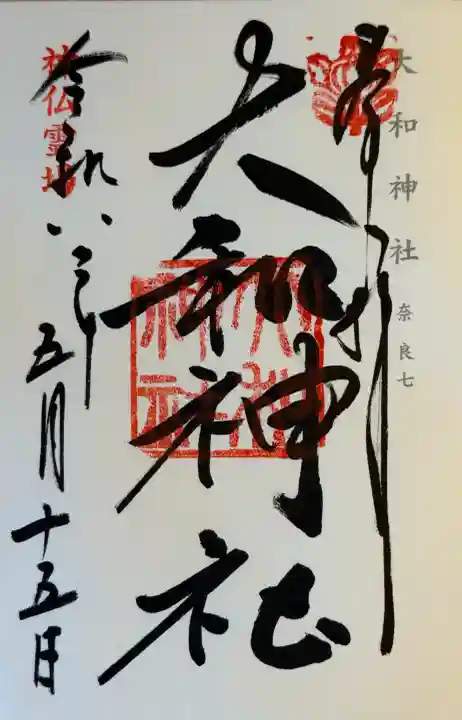 大和神社 奈良七
奉拝
大和神社
大和神社
神仏霊場
令和八年
五月十五日